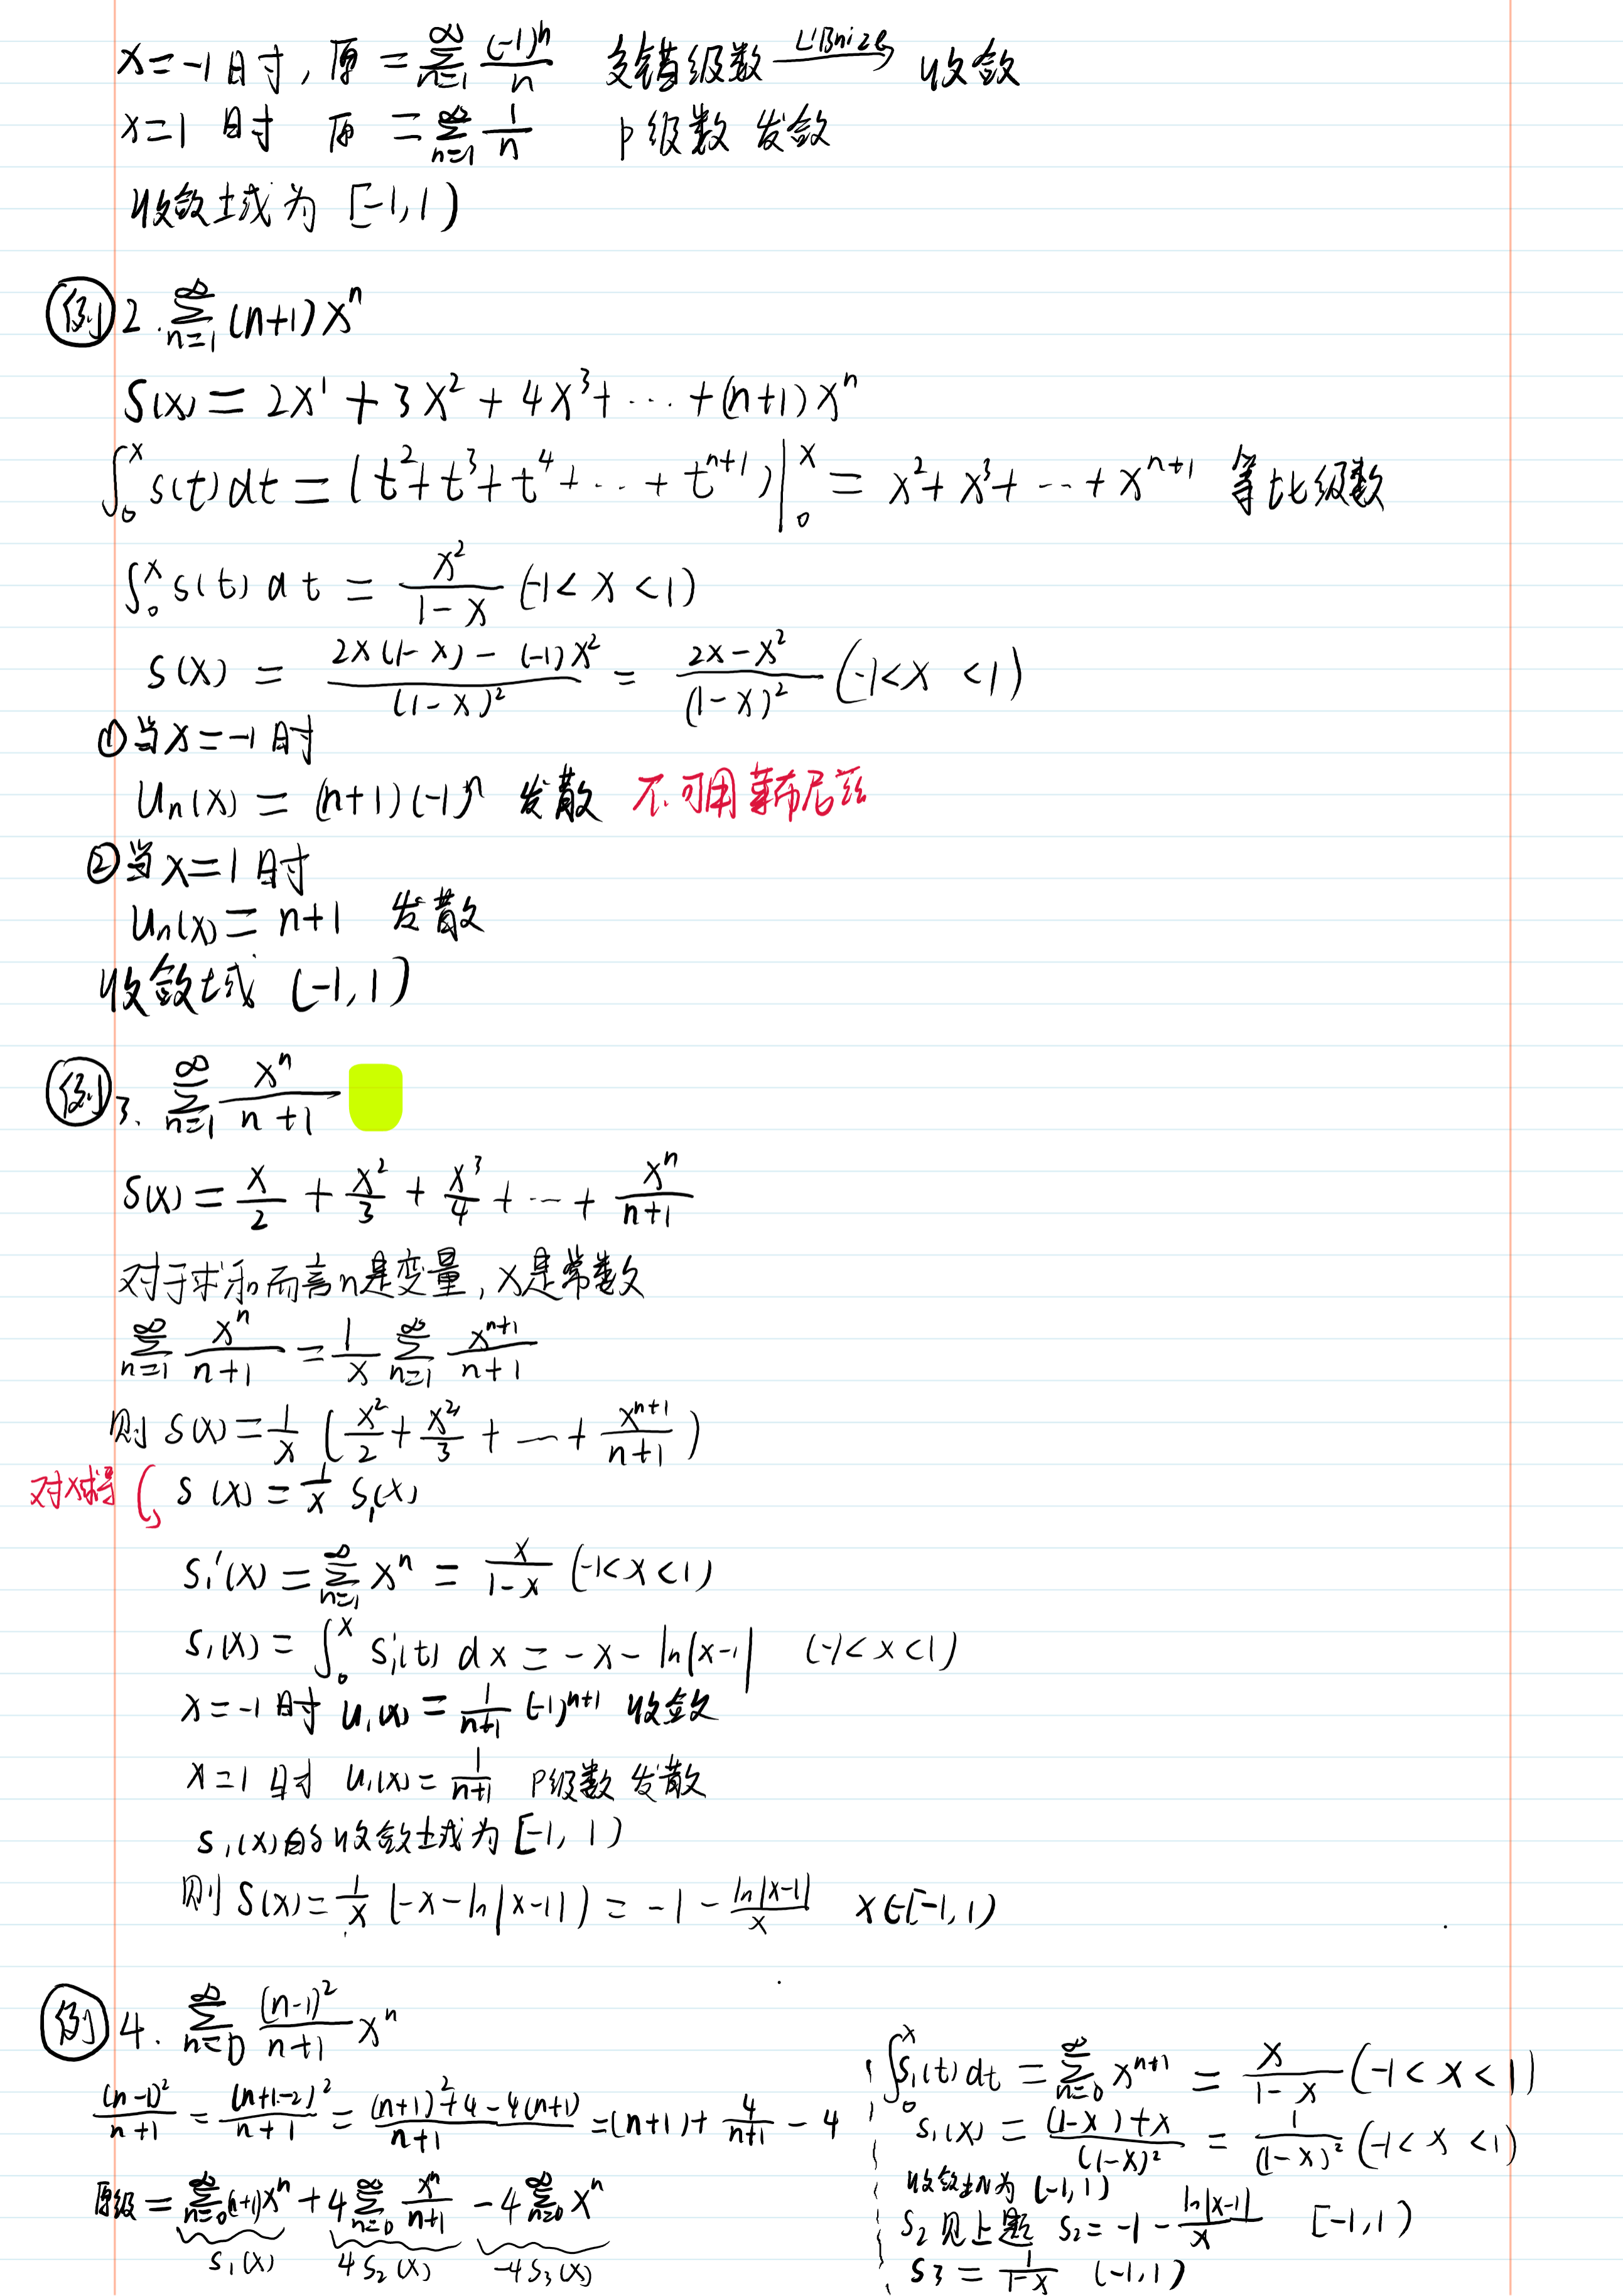 x=-1时, 原 = ∑_{n=1}^{∞} (-1)^n/n 交错级数 →(LiBnize) 收敛
x=1 时 原 = ∑_{n=1}^{∞} 1/n p级数 发敛
收敛域为 [-1,1)
例2. ∑_{n=1}^{∞} (n+1)x^n
S(x) = 2x^1 + 3x^2 + 4x^3 + ⋯ + (n+1)x^n
∫_0^x s(t)dt = (t^2+t^3+t^4+⋯+t^{n+1})|_0^x = x^2+x^3+⋯+x^{n+1} 等比级数
∫_0^x s(t)dt = x^2/(1-x) (-1<x<1)
S(x) = (2x(1-x)-(-1)x^2)/(1-x)^2 = (2x-x^2)/(1-x)^2 (-1<x<1)
①当x=-1时
u_n(x) = (n+1)(-1)^n 发散 不可用莱布尼兹
②当x=1时
u_n(x) = n+1 发散
收敛域 (-1,1)
例3. ∑_{n=1}^{∞} x^n/(n+1)
S(x) = x/2 + x^2/3 + x^3/4 + ⋯ + x^n/(n+1)
对于求和而言n是变量, x是常数
∑_{n=1}^{∞} x^n/(n+1) = 1/x ∑_{n=1}^{∞} x^{n+1}/(n+1)
则 S(x) = 1/x (x^2/2 + x^2/3 + ⋯ + x^{n+1}/(n+1))
对x求导 S(x) = 1/x S_1(x)
S_1'(x) = ∑_{n=1}^{∞} x^n = x/(1-x) (-1<x<1)
S_1(x) = ∫_0^x S_1'(t) dx = -x-ln|x-1| (-1<x<1)
x=-1时 u_1(x) = 1/(n+1) (-1)^{n+1} 收敛
x=1时 u_1(x) = 1/(n+1) P级数 发散
S_1(x)的收敛域为[-1,1)
则 S(x) = 1/x (-x-ln|x-1|) = -1 - ln|x-1|/x x∈[-1,1)
例4. ∑_{n=0}^{∞} (n-1)^2/(n+1) x^n
(n-1)^2/(n+1) = (n+1-2)^2/(n+1) = ((n+1)^2+4-4(n+1))/(n+1) = (n+1) + 4/(n+1) - 4
原级 = ∑_{n=0}^{∞} (n+1)x^n + 4∑_{n=0}^{∞} x^n/(n+1) - 4∑_{n=0}^{∞} x^n
S_1(x) 4S_2(x) -4S_3(x)
∫_0^x S_1(t)dt = ∑_{n=0}^{∞} x^{n+1} = x/(1-x) (-1<x<1)
S_1(x) = ((1-x)+x)/(1-x)^2 = 1/(1-x)^2 (-1<x<1)
收敛域为 (-1,1)
S_2 见上题 S_2 = -1 - ln|x-1|/x [-1,1)
S_3 = 1/(1-x) (-1,1)